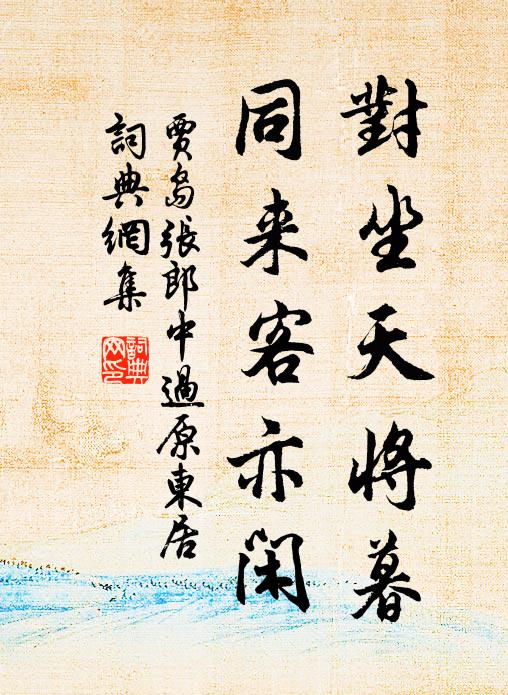 對坐天將暮
同来客亦閑
賈島張郎中過原東居
詞典網集
詞典网印